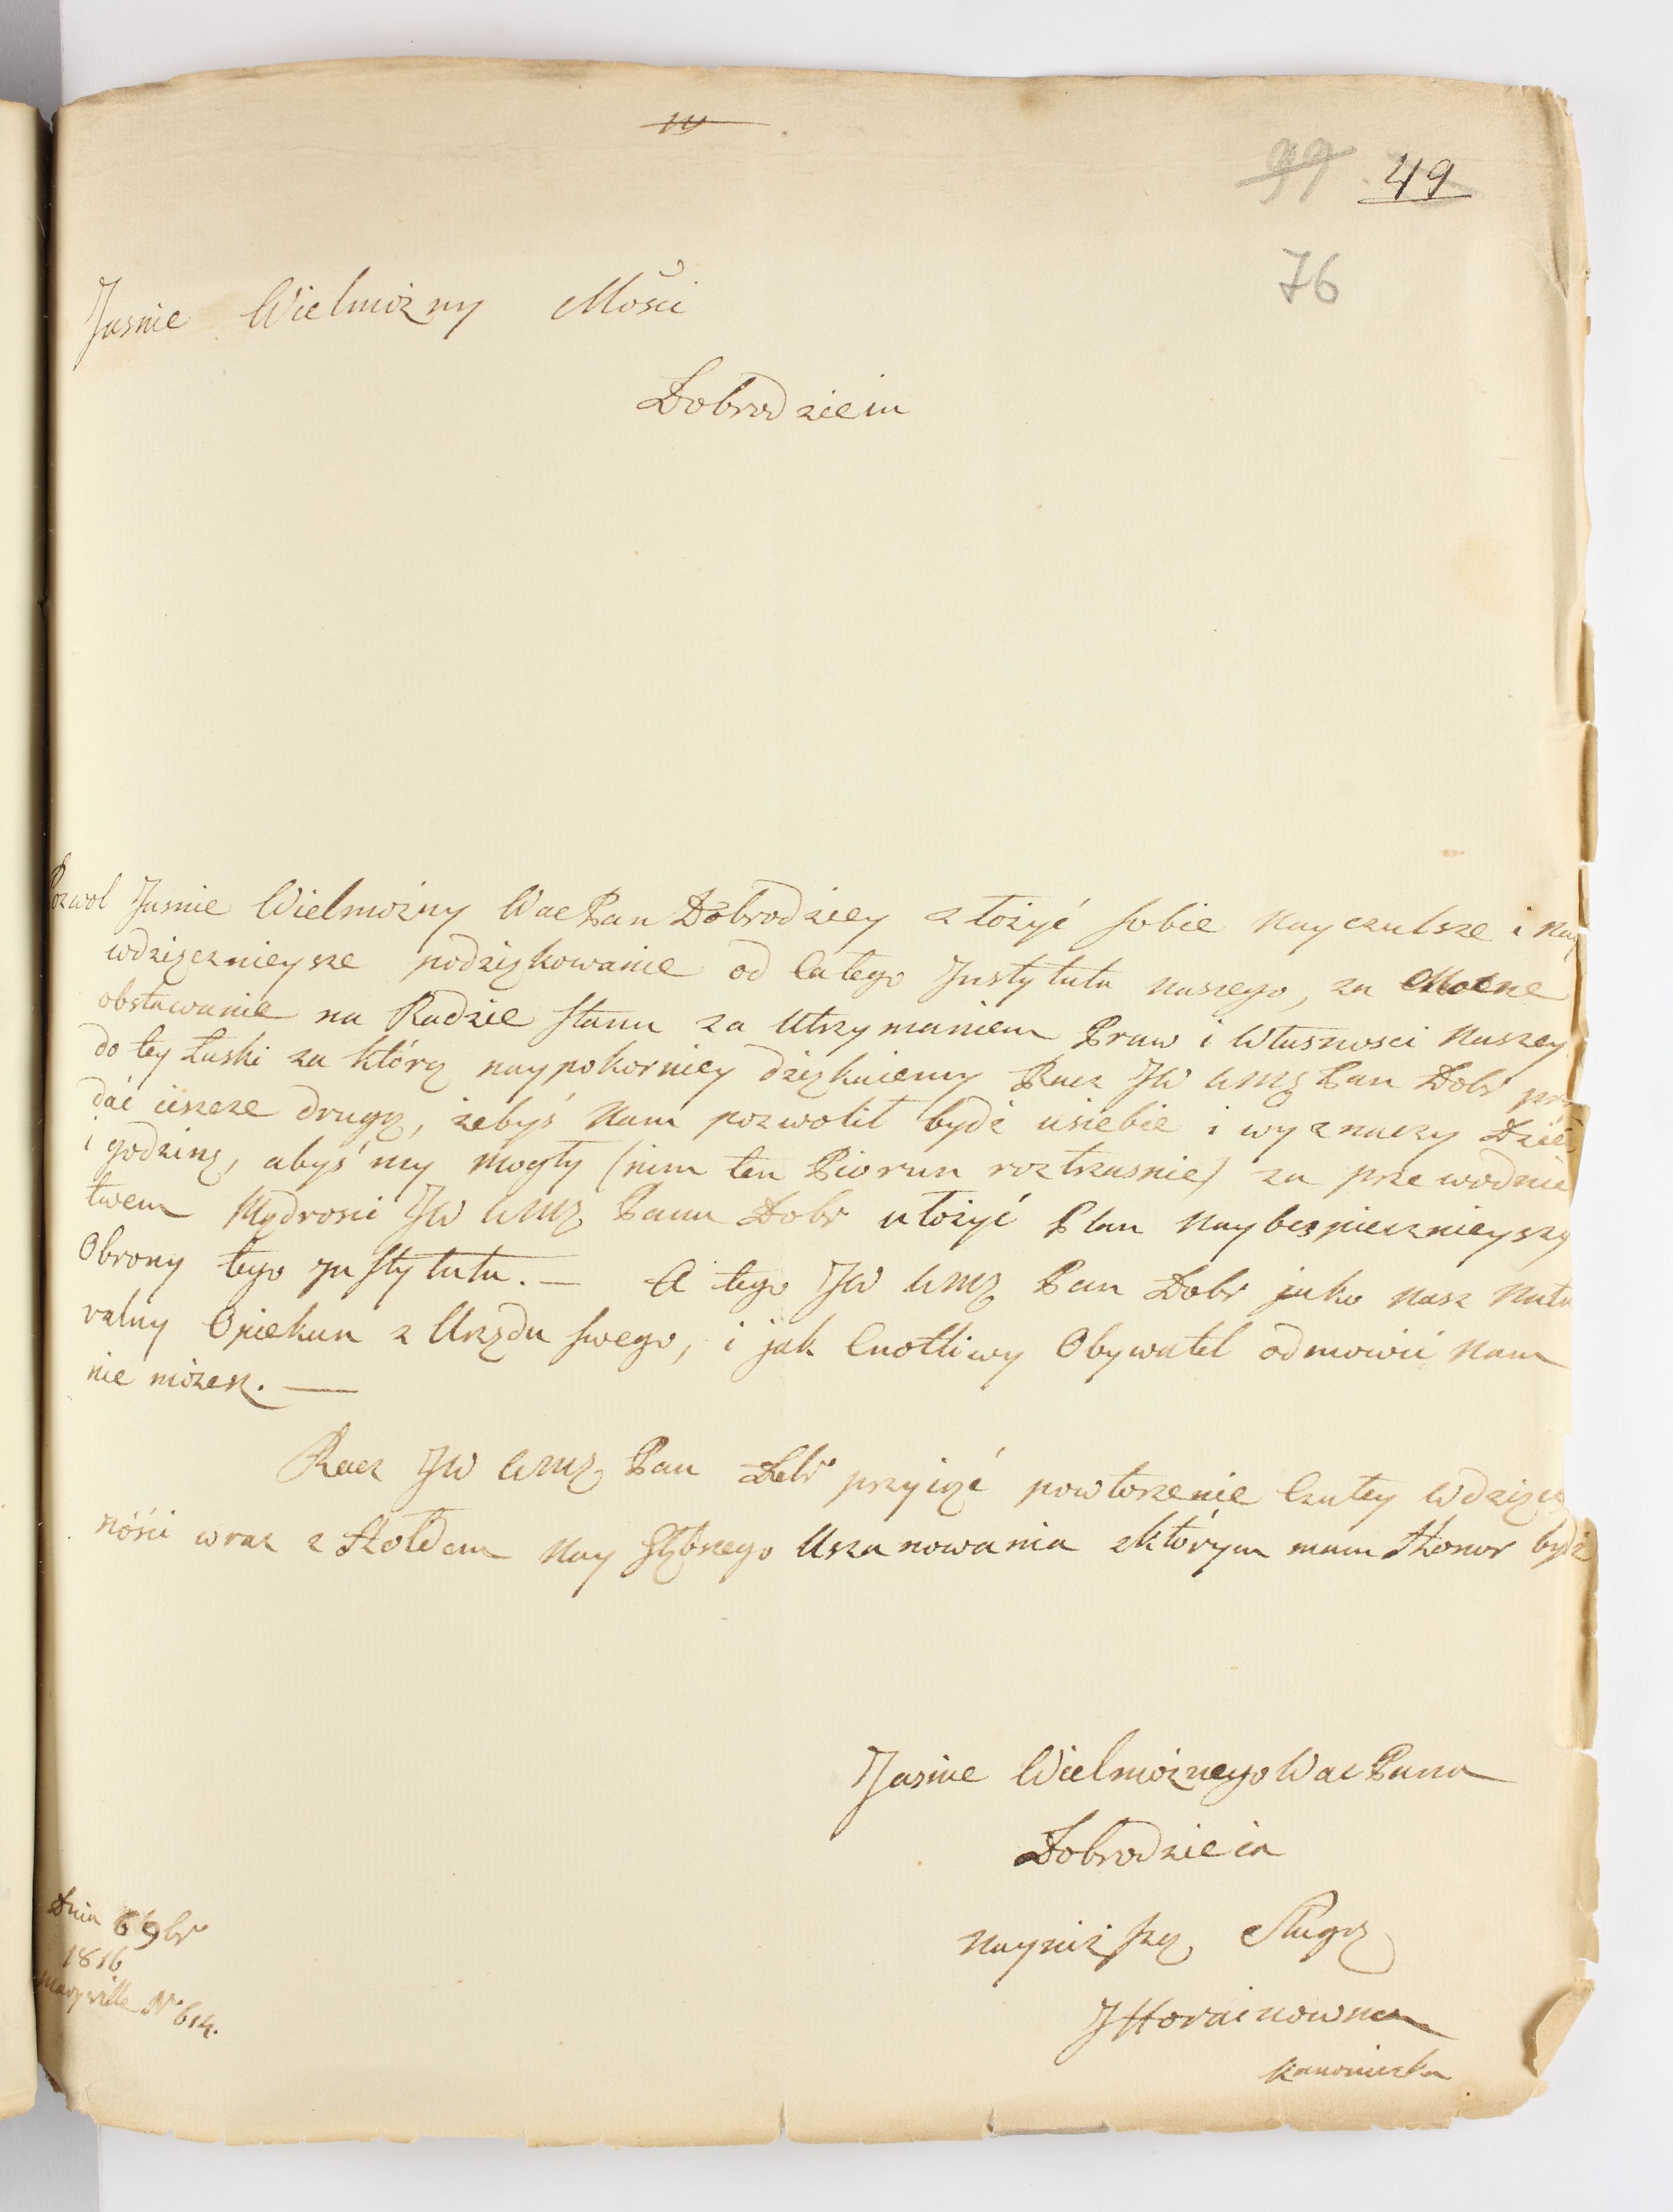 49
76
Jasnie Wielmożny Mości
Dobrodzieiu
Pozwol Jasnie Wielmożny WacPan Dobrodziey złożyć sobie Nayczulsze i Nay
wdzięcznieysze podziękowanie od Całego Instytutu naszego, za Mocne
obstawanie na Radzie Stanu za Utrzymaniem Praw i Własnosci Naszey
do tey Łaski za którą naypokorniey dziękuiemy Racz JW WMę Pan Dobr
dać ieszcze drugą, żebyś Nam pozwolił bydź usiebie i wyznaczy Dzień
i godzinę, abyśmy mogły (nim ten Piorun roztrzasnie) za przewodnic
twem Mądrosci JW WMę Pana Dobr ułożyć Plan Naybezpiecznieyszy
Obrony tego Instytutu. — A tego JW WMę Pan Dobr jako Nasz Natu
ralny Opiekun z Urzędu swego, i jak Cnotliwy Obywatel odmowić Nam
nie możesz. —
Racz JW WMę Pan Dobr przyiąć powtorzenie Czułey Wdzięcz
nósci wraz z Hołdem Nay głębszego Uszanowania zktórym mam Honor bydź
Jasnie Wielmożnego Wac Pana
Dobrodzieia
Nayniższą Sługą
J Horainowna
Kanoniczka
Dnia 6 9br
1816
Maryville N° 614.